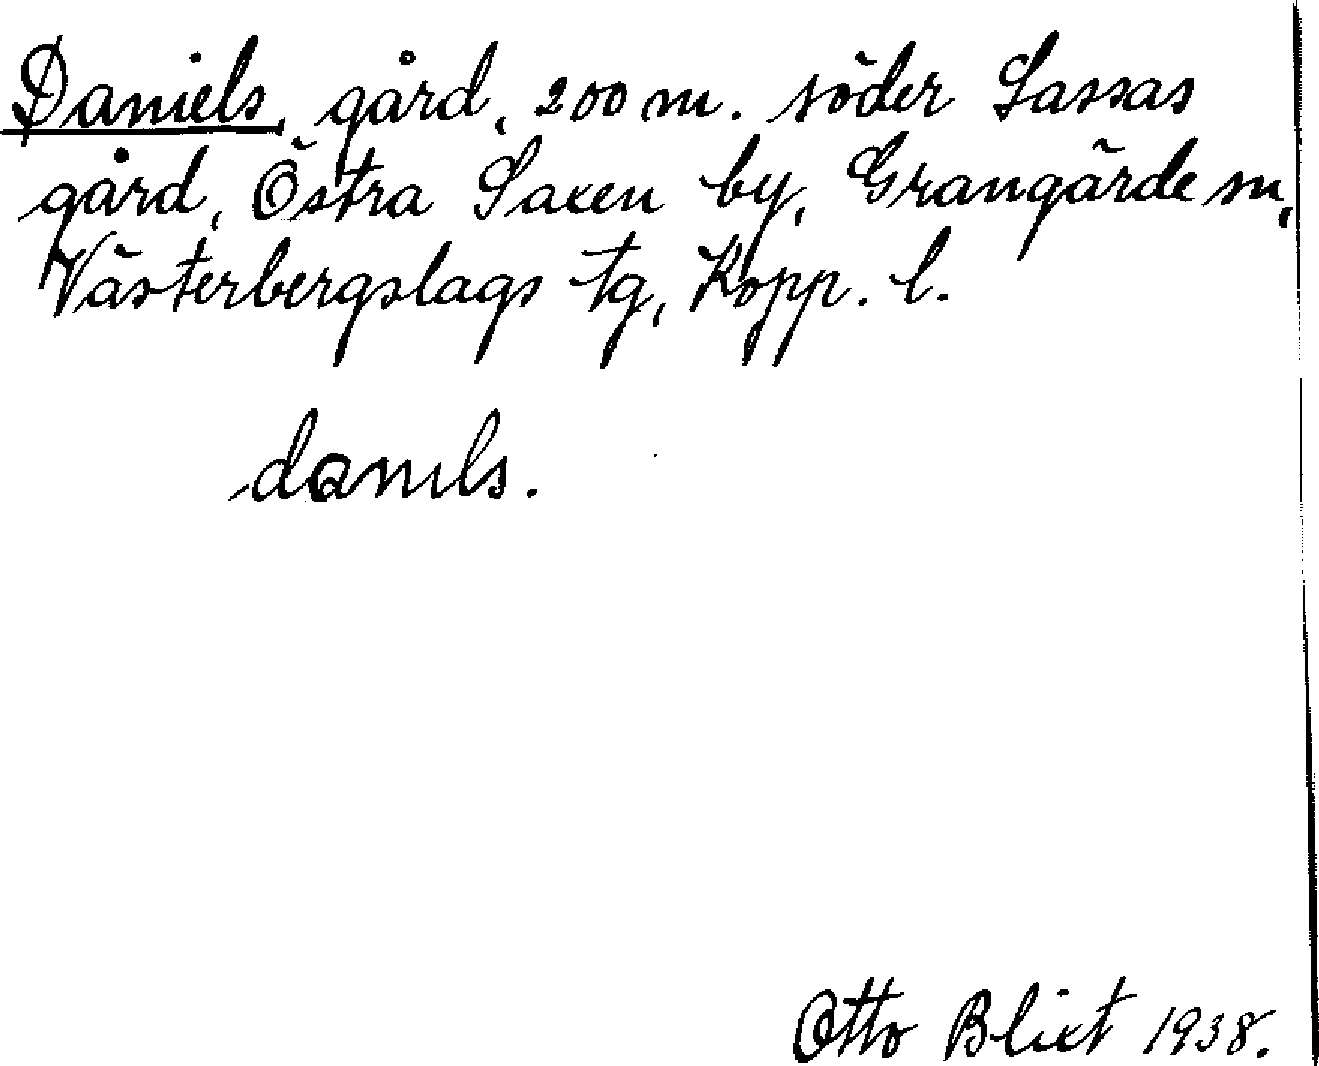 Daniels, gård, 200 m. söder Lassas
gård, Östra Saxen by, Grangärde sn,
Västerbergslags tg, Kopp. l.
danıls.
Otto Blixt 1938.